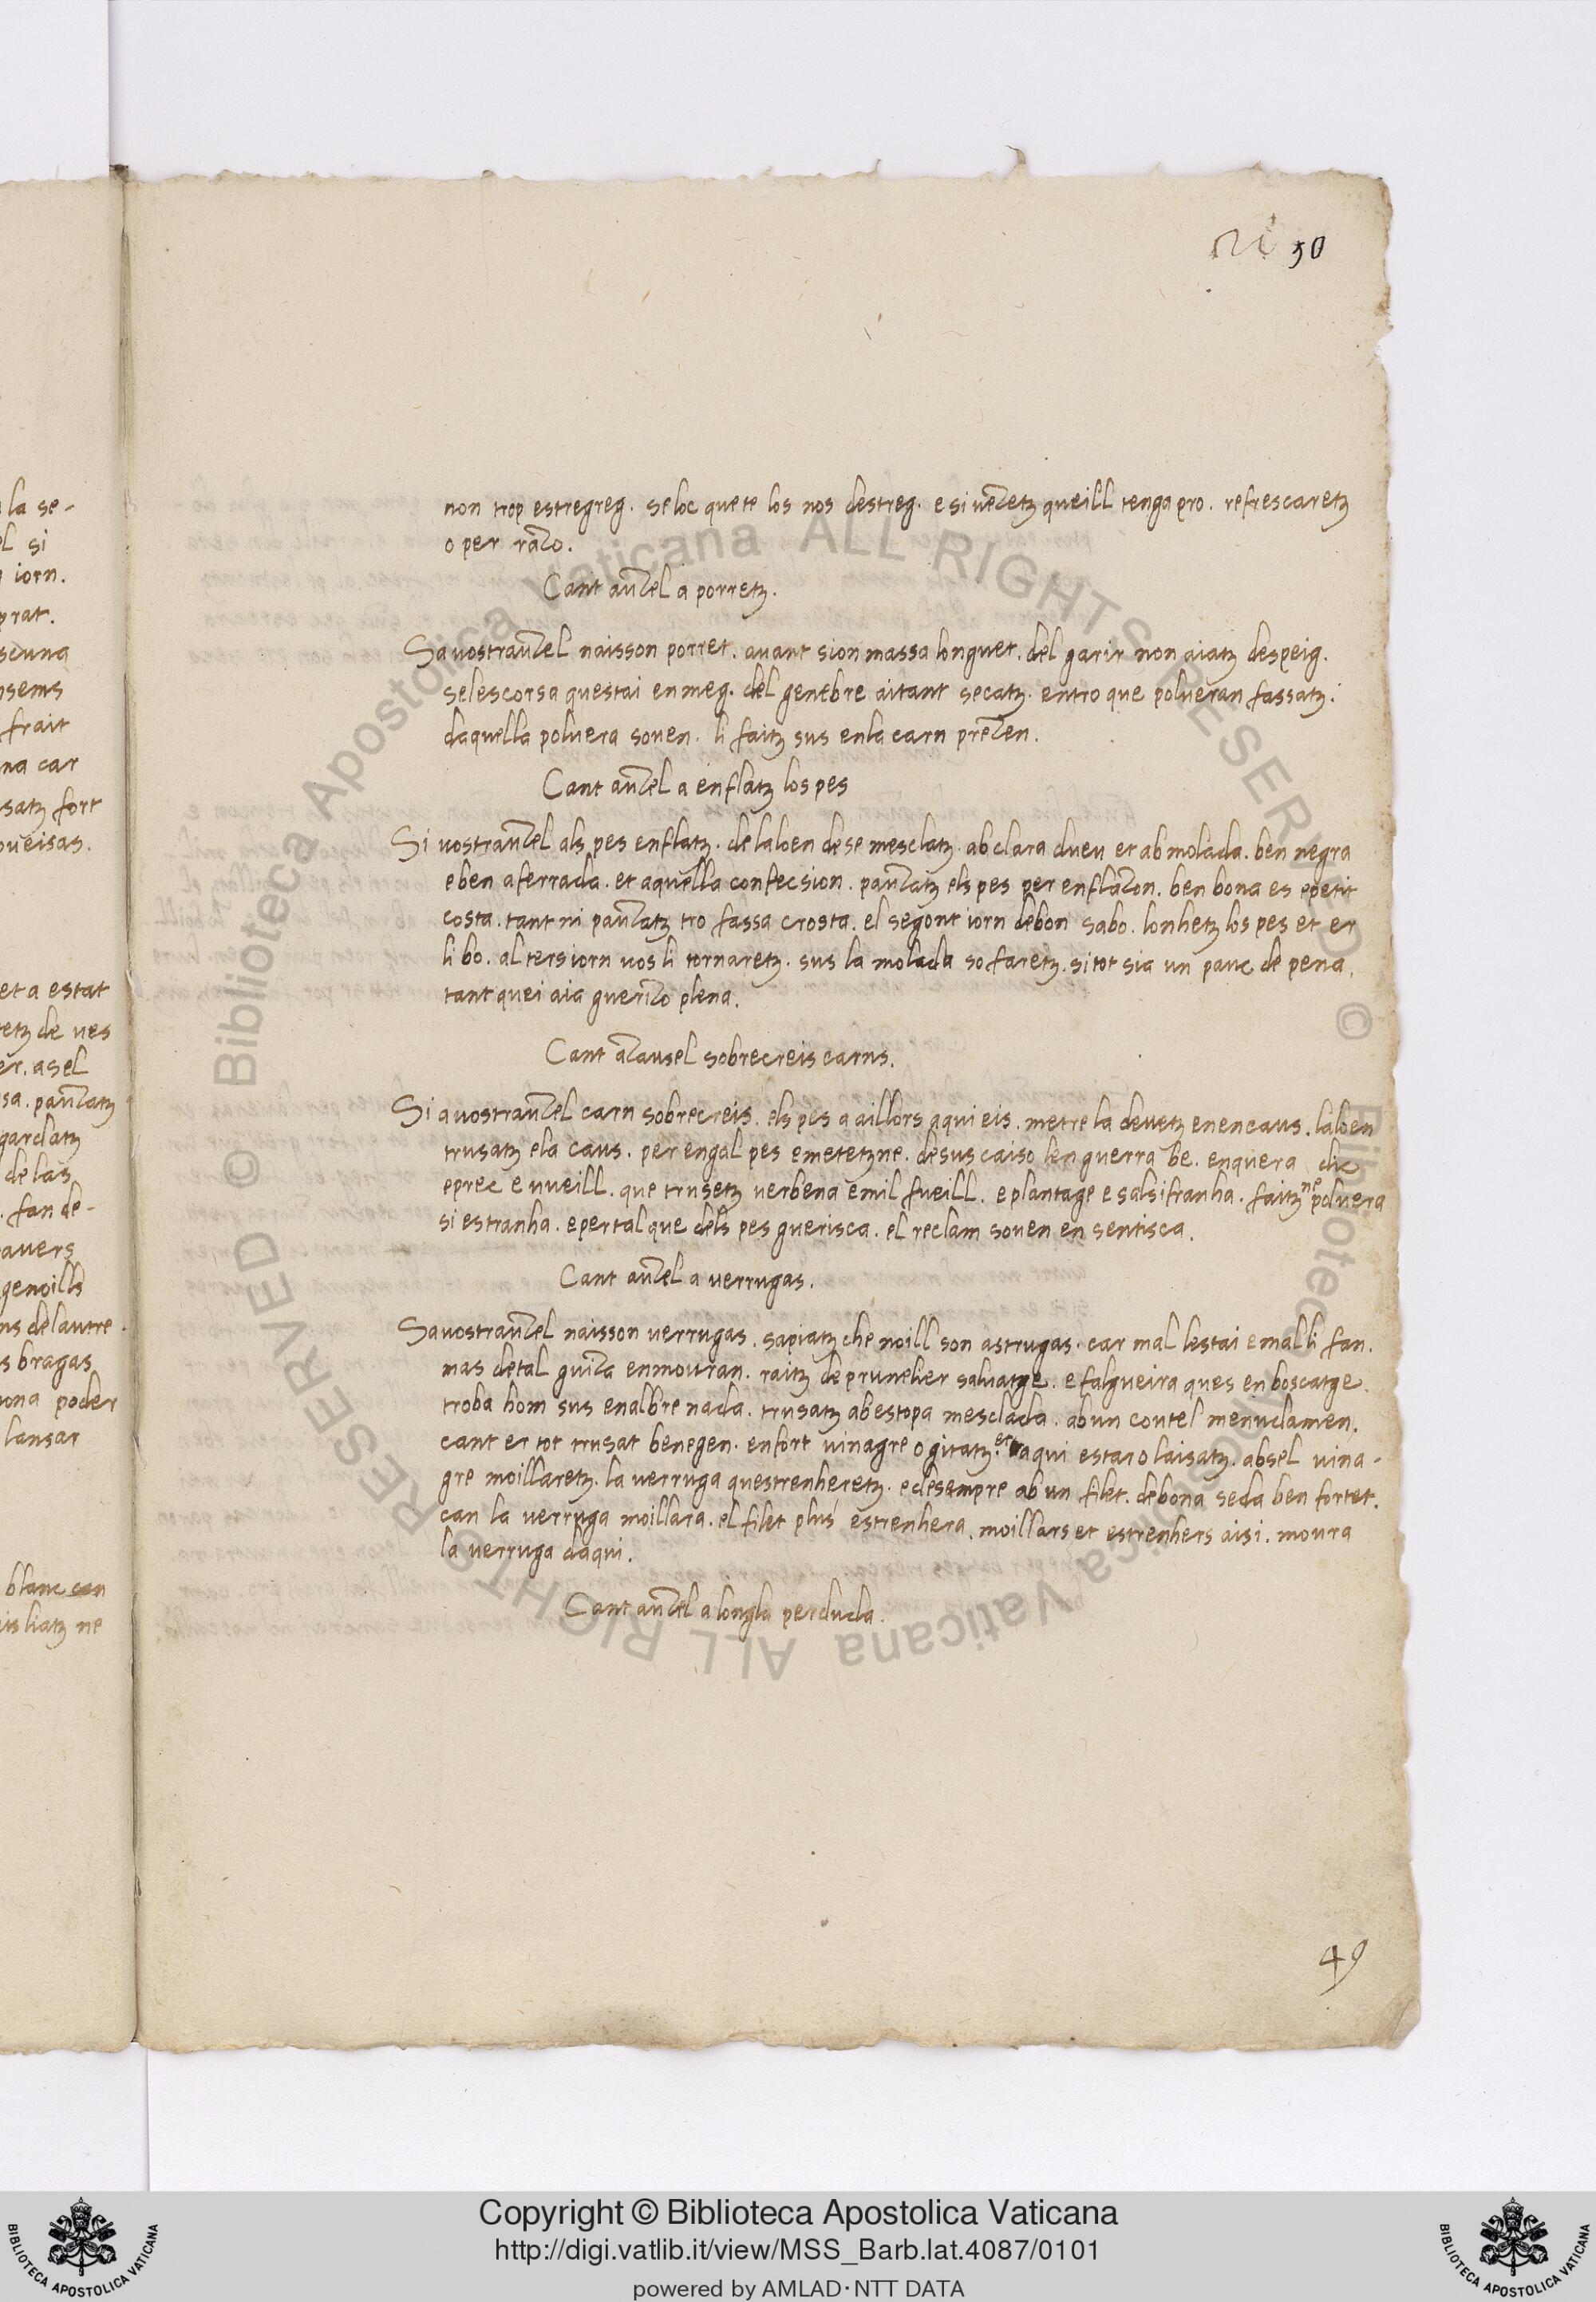 50
non trop estregreg. se loc que te los nos destreg. e si uezetz queill tenga pro. refrescaretz
o per razo.
Cant auzel a porretz.
Sa uostrauzel naisson porret. auant sion massa longuet. del garir non aiatz despeig.
selescorsa questai en meg. del genebre aitant secatz. entro que polueran fassatz.
daquella poluera souen. li faitz sus enla carn prezen.
Cant auzel a enflatz los pes
Si uostrauzel als pes enflatz. de laloen dese mesclatz. ab clara dueu et ab molada. ben negra
e ben aferrada. et aquella confecsion. pauzatz els pes per enflazon. ben bona es e petit
costa. tant ni pauzatz tro fassa crosta. el segont iorn de bon sabo. lonhetz los pes et er
li bo. al ters iorn uos li tornaretz. sus la molada so faretz. si tot sia un pauc de pena.
tant quei aia guerizo plena.
Cant azausel sobrecreis carns.
Si a uostrauzel carn sobrecreis. els pes a aillors aqui eis. metre la deuetz enencaus. laloen
trusatz ela caus. per engal pes e metetz ne. desus caiso len guerra be. enquera dic
e prec e uueill. que trusetz uerbena e mil fueill. e plantage e salsifranha. faitz ne poluera
si estranha. e per tal que dels pes guerisca. el reclam souen en sentisca.
Cant auzel a uerrugas.
Sa uostrauzel naisson uerrugas. sapiatz che noill son astrugas. car mal lestai e mal li fan.
mas de tal guiza enmouran. raitz de prunelier saluatge. e falgueira ques en boscatge.
troba hom sus enalbre nada. trusatz ab estopa mesclada. ab un coutel menudamen.
cant er tot trusat ben e gen. en fort uinagre o gitatz. et aqui estar o laisatz. ab sel uina-
gre moillaretz. la uerruga questrenheretz. e desempre ab un filet. de bona seda ben fortet.
can la uerruga moillara. el filet plus estrenhera. moillars et estrenhers aisi. moura
la uerruga daqui.
Cant auzel a longla perduda.
49
la se-
el si
iorn.
prat.
scuna
nsems
frait
na car
satz fort
oueisas.
et a estat
etz de ues
er. a sel
sa. pauzatz
gardatz
de las
. fan de-
auers
genoills
ns de lautre.
s bragas
ona poder
lansar
blanc can
is liatz ne
© Biblioteca Apostolica Vaticana ALL RIGHTS RESERVED © Biblioteca Apostolica Vaticana ALL RIGHTS RESERVED
BIBLIOTECA APOSTOLICA VATICANA
Copyright © Biblioteca Apostolica Vaticana
http://digi.vatlib.it/view/MSS_Barb.lat.4087/0101
powered by AMLAD·NTT DATA
BIBLIOTECA APOSTOLICA VATICANA